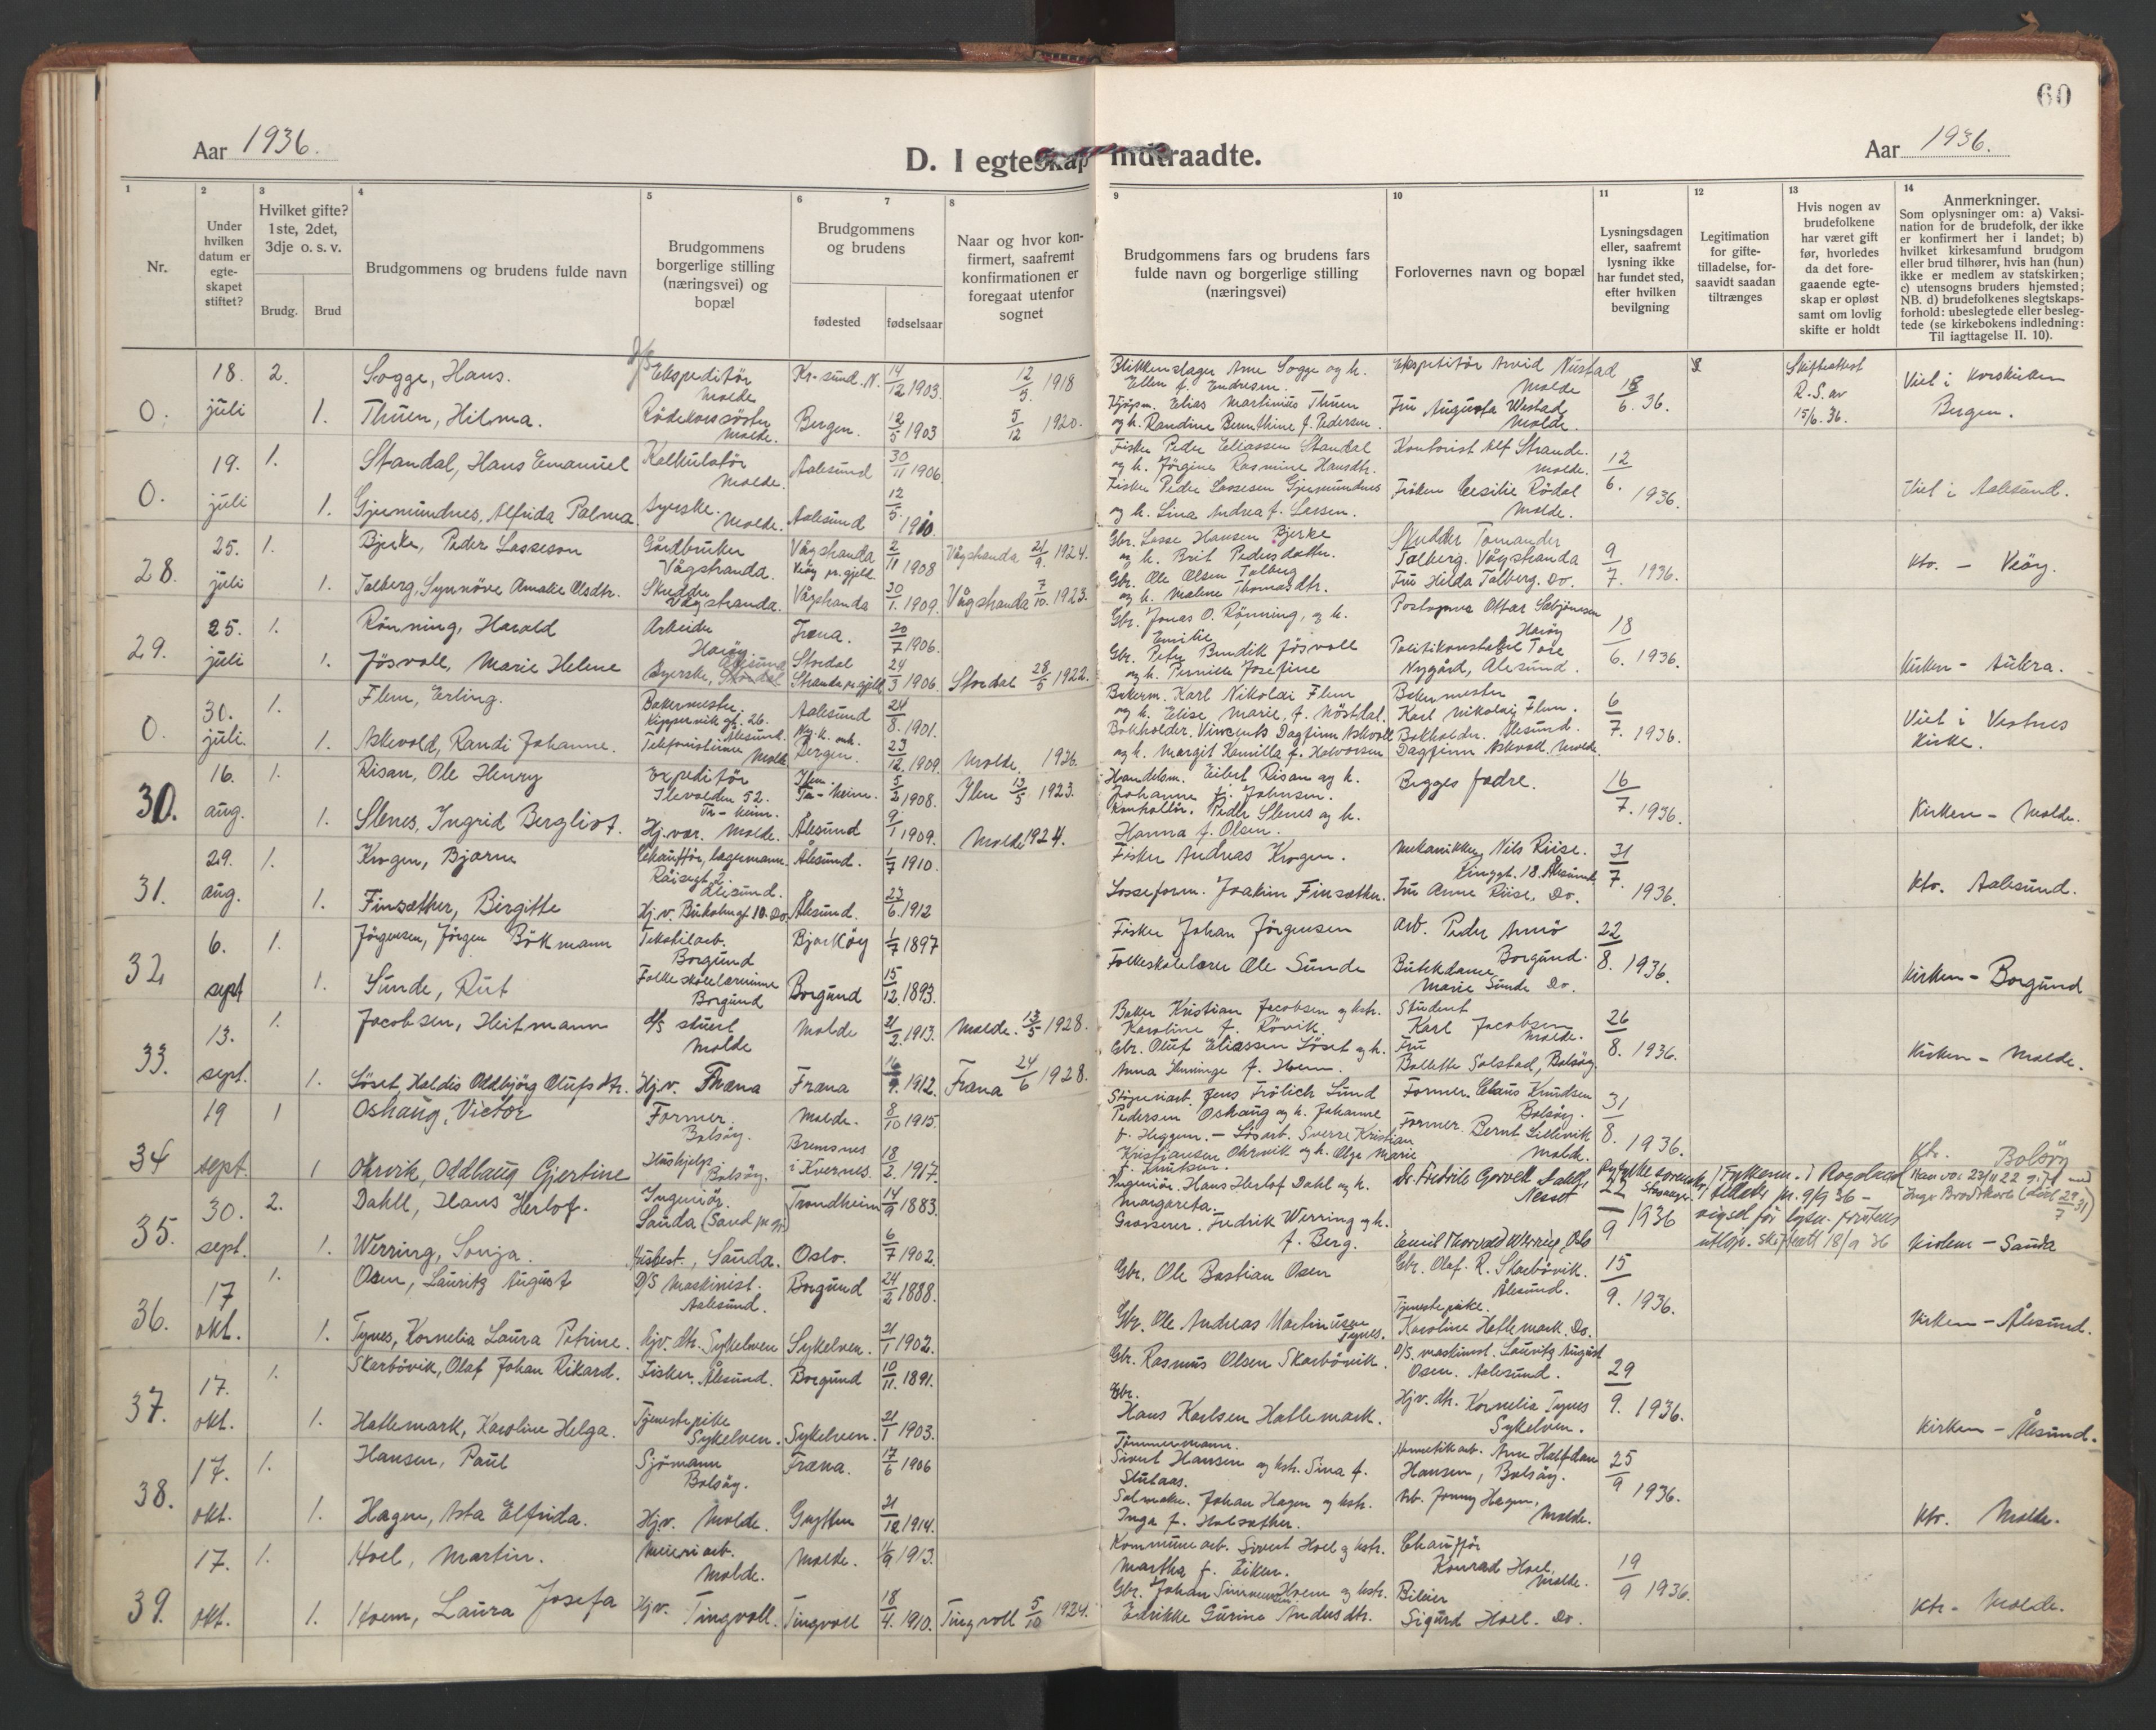 60
Aar 1936.
D. I egteskap indtraadte.
Aar 1936.
1
2
3
4
5
6
7
8
9
10
11
12
13
14
Nr.
Under hvilken datum er egte-skapet stiftet?
Hvilket gifte? 1ste, 2det, 3dje o. s. v.
Brudg.
Brud
Brudgommens og brudens fulde navn
Brudgommens borgerlige stilling (næringsvei) og bopæl
Brudgommens og brudens
fødested
fødselsaar
Naar og hvor kon-firmert, saafremt konfirmationen er foregaat utenfor sognet
Brudgommens fars og brudens fars fulde navn og borgerlige stilling (næringsvei)
Forlovernes navn og bopæl
Lysningsdagen eller, saafremt lysning ikke har fundet sted, efter hvilken bevilgning
Legitimation for gifte-tilladelse, for-saavidt saadan tiltrænges
Hvis nogen av brudefolkene har været gift før, hvorledes da det fore-gaaende egte-skap er opløst samt om lovlig skifte er holdt
Anmerkninger.
Som oplysninger om: a) Vaksi-nation for de brudefolk, der ikke er konfirmert her i landet; b) hvilket kirkesamfund brudgom eller brud tilhører, hvis han (hun) ikke er medlem av statskirken; c) utensogns bruders hjemsted; NB. d) brudefolkenes slegtskaps-forhold: ubeslegtede eller besleg-tede (se kirkebokens indledning: Til iagttagelse II. 10).
0. 18. juli 2. Sogge, Hans. Ekspeditör Molde Kr-sund. N. 14/12 1903. 12/5 1918
Blikkenslager Arne Sogge og h. Ellen f. Endresen. Ekspeditör Arvid Nustad Molde 18/6. 36. Skifteattest R.S. av 15/6. 36. Viet i Korskirken Bergen.
1. Thuen, Hilma. Rödekorssöster Molde. Bergen. 12/5 1903 5/12 1920.
Kjöpm. Elias Martinius Thuen og h. Randine Bernthine f. Pedersen. Fru Augusta Westad Molde.
0. 19. juli 1. Standal, Hans Emanuel Kalkulatör Molde. Aalesund 30/11 1906
Fisker Peder Eliassen Standal og h. Jörgine Rasmine Hansdtr. Kontorist Alf Strande. Molde. 12/6. 1936. Viet i Aalesund.
1. Gjermundnes, Alfrida Palma. Syerske. Molde. Aalesund 12/5. 1910.
Fisker Peder Lassesen Gjermundnes og h. Lina Andrea f. Larsen. Fröken Cesilie Rödal Molde.
28. 25. juli 1. Bjerke, Peder Lasseson Gårdbruker Vågstranda. Vågstranda Veöy pr.gjeld. 2/11 1908 Vågstranda 21/9. 1924.
Gbr. Lasse Hansen Bjerke og h. Brit Pedersdatter. Skredder Tomander Talberg. Vågstranda 9/7. 1936. Ktr. - Veöy.
1. Talberg, Synnöve Amalie Olsdtr. Skredder Vågstranda. Vågstranda 30/1. 1909. Vågstranda 7/10. 1923.
Gbr. Ole Olsen Talberg og h. Malene Thomasdtr. Fru Hilda Talberg. Do.
29. 25. juli 1. Rönning, Harald Arbeider Haröy. Fræna. 20/7 1906.
Gbr. Jonas O. Rönning, og h. Emilie Haröy 18/6. 1936. Kirken - Aukra.
1. Jösvoll, Marie Helene Syerske, Ålesund Stordal Stranda pr.gjeld 24/3 1906. Stordal 28/5 1922.
Gbr. Peter Bendik Jösvoll og h. Pernille Josefine Politikonstabel Tore Nygård, Alesund.
0. 30. juli. 1. Flem, Erling. Bakermester. Kippervik gt. 26. Ålesund. Aalesund 24/8. 1901.
Bakerm. Karl Nikolai Flem og h. Elise Marie, f. Nöstdal. Bakermester Karl Nikolai Flem. Ålesund. 6/7. 1936. Viet i Vestnes kirke.
1. Askevold, Randi Johanne. Telefonistinne Molde Bergen. 23/12. 1909. Molde. 1926.
Bokholder, Vincents Dagfinn Askvoll og h. Margit Kamilla f. Halvorsen Bokholder. Dagfinn Askvoll, Molde.
30. 16. aug. 1. Risan, Ole Henry Expeditör Ilevolden 52. Tr-heim. Ilen. Tr-heim. 5/2 1908. Ilen 13/5 1923.
Handelsm. Eilert Risan og h. Johanne f. Johnsen. Begges fædre. 16/7. 1936. Kirken - Molde.
1. Slenes, Ingrid Bergliot. Hj.vær. Molde. Ålesund 9/1 1909. Molde 1924.
Kontrollör. Peder Slenes og h. Hanna f. Olsen.
31. 29. aug. 1. Krogen, Bjarne Chaufför, lagermann. Ålesund. Ålesund. 1/7 1910.
Fisker Andreas Krogen. Mekanikker Nils Riise. Ringgt. 18. Ålesund 31/7. 1936. Ktr. Aalesund.
1. Finsæther, Birgitte Hj.v. Bukolmgt 10. Do. Ålesund. 23/6. 1912
Losseform. Joakim Finsæther. Fru Anne Riise, Do.
32 6. sept 1. Jörgensen, Jörgen Bökmann Tekstilarb. Borgund Bjarköy 1/7 1897
Fisker Johan Jörgensen Arb. Peder Arnö Borgund. 22/8. 1936. Kirken - Borgund
1. Sunde, Rut Folkeskolelærerinne Borgund Borgund 15/12. 1893.
Folkeskolelærer Ole Sunde Butikdame Marie Sunde Do.
33. 13. sept. 1. Jacobsen, Heitmann d/s stuert Molde Molde 21/2. 1913. Molde. 13/5 1928.
Baker Kristian Jacobsen og hstr. Karoline f. Rövik. Student Karl Jacobsen Molde. 26/8. 1936. Kirken - Molde.
1. Söset, Haldis Oddbjörg Olufsdtr. Hj.v. Fræna Fræna 16/9. 1912. Fræna 24/6 1928.
Gbr. Oluf Eliassen Söset og h. Anna Henninge f. Hoem. Fru Bollette Solstad, Bolsöy.
34 19 sept. 1 Oshaug, Victor Former. Bolsöy. Molde. 8/10 1915.
Jens Frölich Lund Pedersen Oshaug og h. Johanne f. Heggem. Former. Claus Knudsen Bolsöy. 31/8. 1936. Ktr. Bolsöy
1 Ohrvik, Oddbaug Gjertine Hushjelp Bolsöy. Bremsnes i Kvernes. 18/2. 1917.
Lösarb. Sverre Kristian Kristiansen Ohrvik og h. Olga Marie f. Knutsen. Former. Bernt Lillevik Molde.
35. 30. sept. 2. Dahll, Hans Herlof. Ingeniör. Sauda (Sand pr.gj.) Trondheim 14/9 1883.
Ingeniör. Hans Herlof Dahl og h. Margareta. 22/9 1936 Kirken - Sauda
1. Werring, Sonja. Husbest., Sauda. Oslo. 6/7 1902.
Grosserer. Fredrik Werring og h. f. Berg. Emil Thorvald Werring, Oslo
36. 17 okt. 1. Osen, Lauritz August D/S Maskinist. Aalesund. Borgund 24/2 1888.
Gbr. Ole Bastian Osen Gbr. Olaf. R. Skarbövik. Ålesund. 15/9. 1936. Kirken - Ålesund.
1. Tynes, Kornelia Laura Petrine. Hjv. dtr. Sykelven Sykelven. 21/1 1902.
Gbr. Ole Andreas Martinusen Tynes. Tjenestepike. Karoline Hatlemark. Do.
37. 17. okt. 1. Skarbövik, Olaf Johan Rikard. Fisker. Ålesund. Borgund 10/11. 1891.
Gbr. Rasmus Olsen Skarbövik. D/S. maskinist. Lauritz August Osen. Aalesund. 29/9. 1936. Kirken - Ålesund.
1. Hatlemark, Karoline Helga. Tjenestepike Sykelven. Sykelven. 21/1 1903.
Gbr. Hans Karlsen Hatlemark. Hjv. dtr. Kornelia Tynes Sykelven.
38. 17. okt. 1. Hansen, Paul Sjömann Bolsöy. Fræna. 17/6 1906
Tömmermann. Sivert Hansen og hstr. Sina f. Stutaas. Hermetikarb. Arne Halfdan Hansen, Bolsöy. 25/9 1936. Ktr. Molde.
1. Hagen, Asta Elfrida. Hjv. Molde. Grytten 21/12 1914.
Salmaker. Johan Hagen og hstr. Inga f. Halsæther. Arb. Jonny Hagen, Molde.
39. 17. okt. 1. Hoel, Martin. Meieriarb. Molde. Molde. 11/9 1913.
Kommunearb. Sivert Hoel og hstr. Martha f. Eiken. Chaufför Konrad Hoel. Molde. 19/9 1936. Ktr - Molde.
1. Hoem, Laura Josefa Hjv. Tingvoll. Tingvoll 18/4. 1910. Tingvoll 5/10 1924.
Gbr. Johan Hoem og hstr. Edrikke Gurine Andersdtr. Bileier Sigurd Hoel. Do.